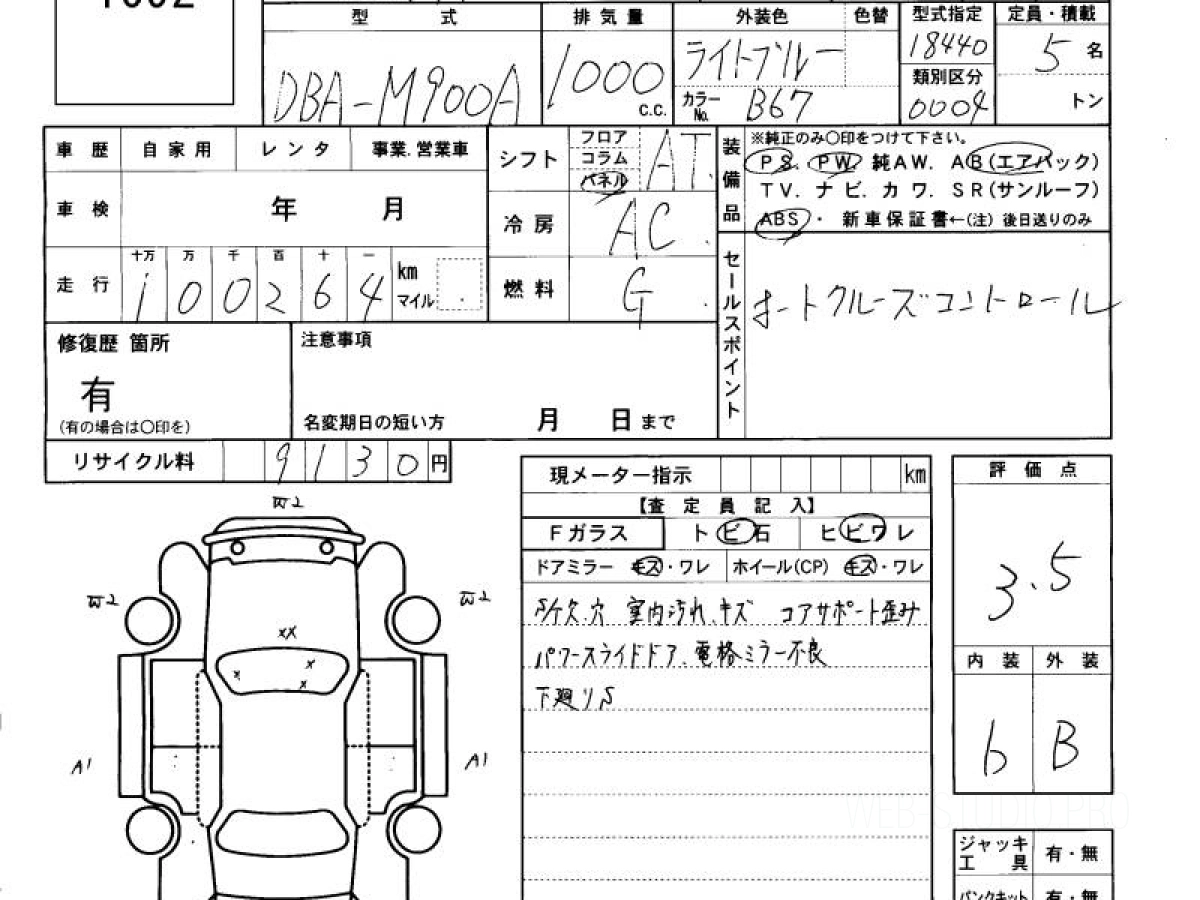 型 式 排気量 外装色 色替 型式指定 定員・積載
DBA-M900A 1000 c.c. ライトブルー 18440 5 名
カラーNo. B67 類別区分 0004 トン
車歴 自家用 レンタ 事業.営業車
シフト フロア コラム パネル AT
装備品 ※純正のみ〇印をつけて下さい。
PS. PW. 純AW. AB(エアバック)
TV. ナビ. カワ. SR(サンルーフ)
ABS・ 新車保証書←(注) 後日送りのみ
車検 年 月
冷房 AC
走行 十万 万 千 百 十 一
100264 km マイル
燃料 G
セールスポイント オートクルーズコントロール
修復歴 箇所
有
(有の場合は〇印を)
注意事項
名変期日の短い方 月 日まで
リサイクル料 9130円
現メーター指示 km
【査定員記入】
Fガラス トビ石 ヒビワレ
ドアミラー キズ・ワレ ホイール(CP) キズ・ワレ
S欠.穴 室内汚れ.キズ コアサポート歪み
パワースライドドア.電格ミラー不良
下廻りS
評価点
3.5
内装 外装
b B
W2
W2
W2
XX
x
x
x
A1
A1
WEB-STUDIO.PRO
ジャッキ工具 有・無
パンクキット 有・無